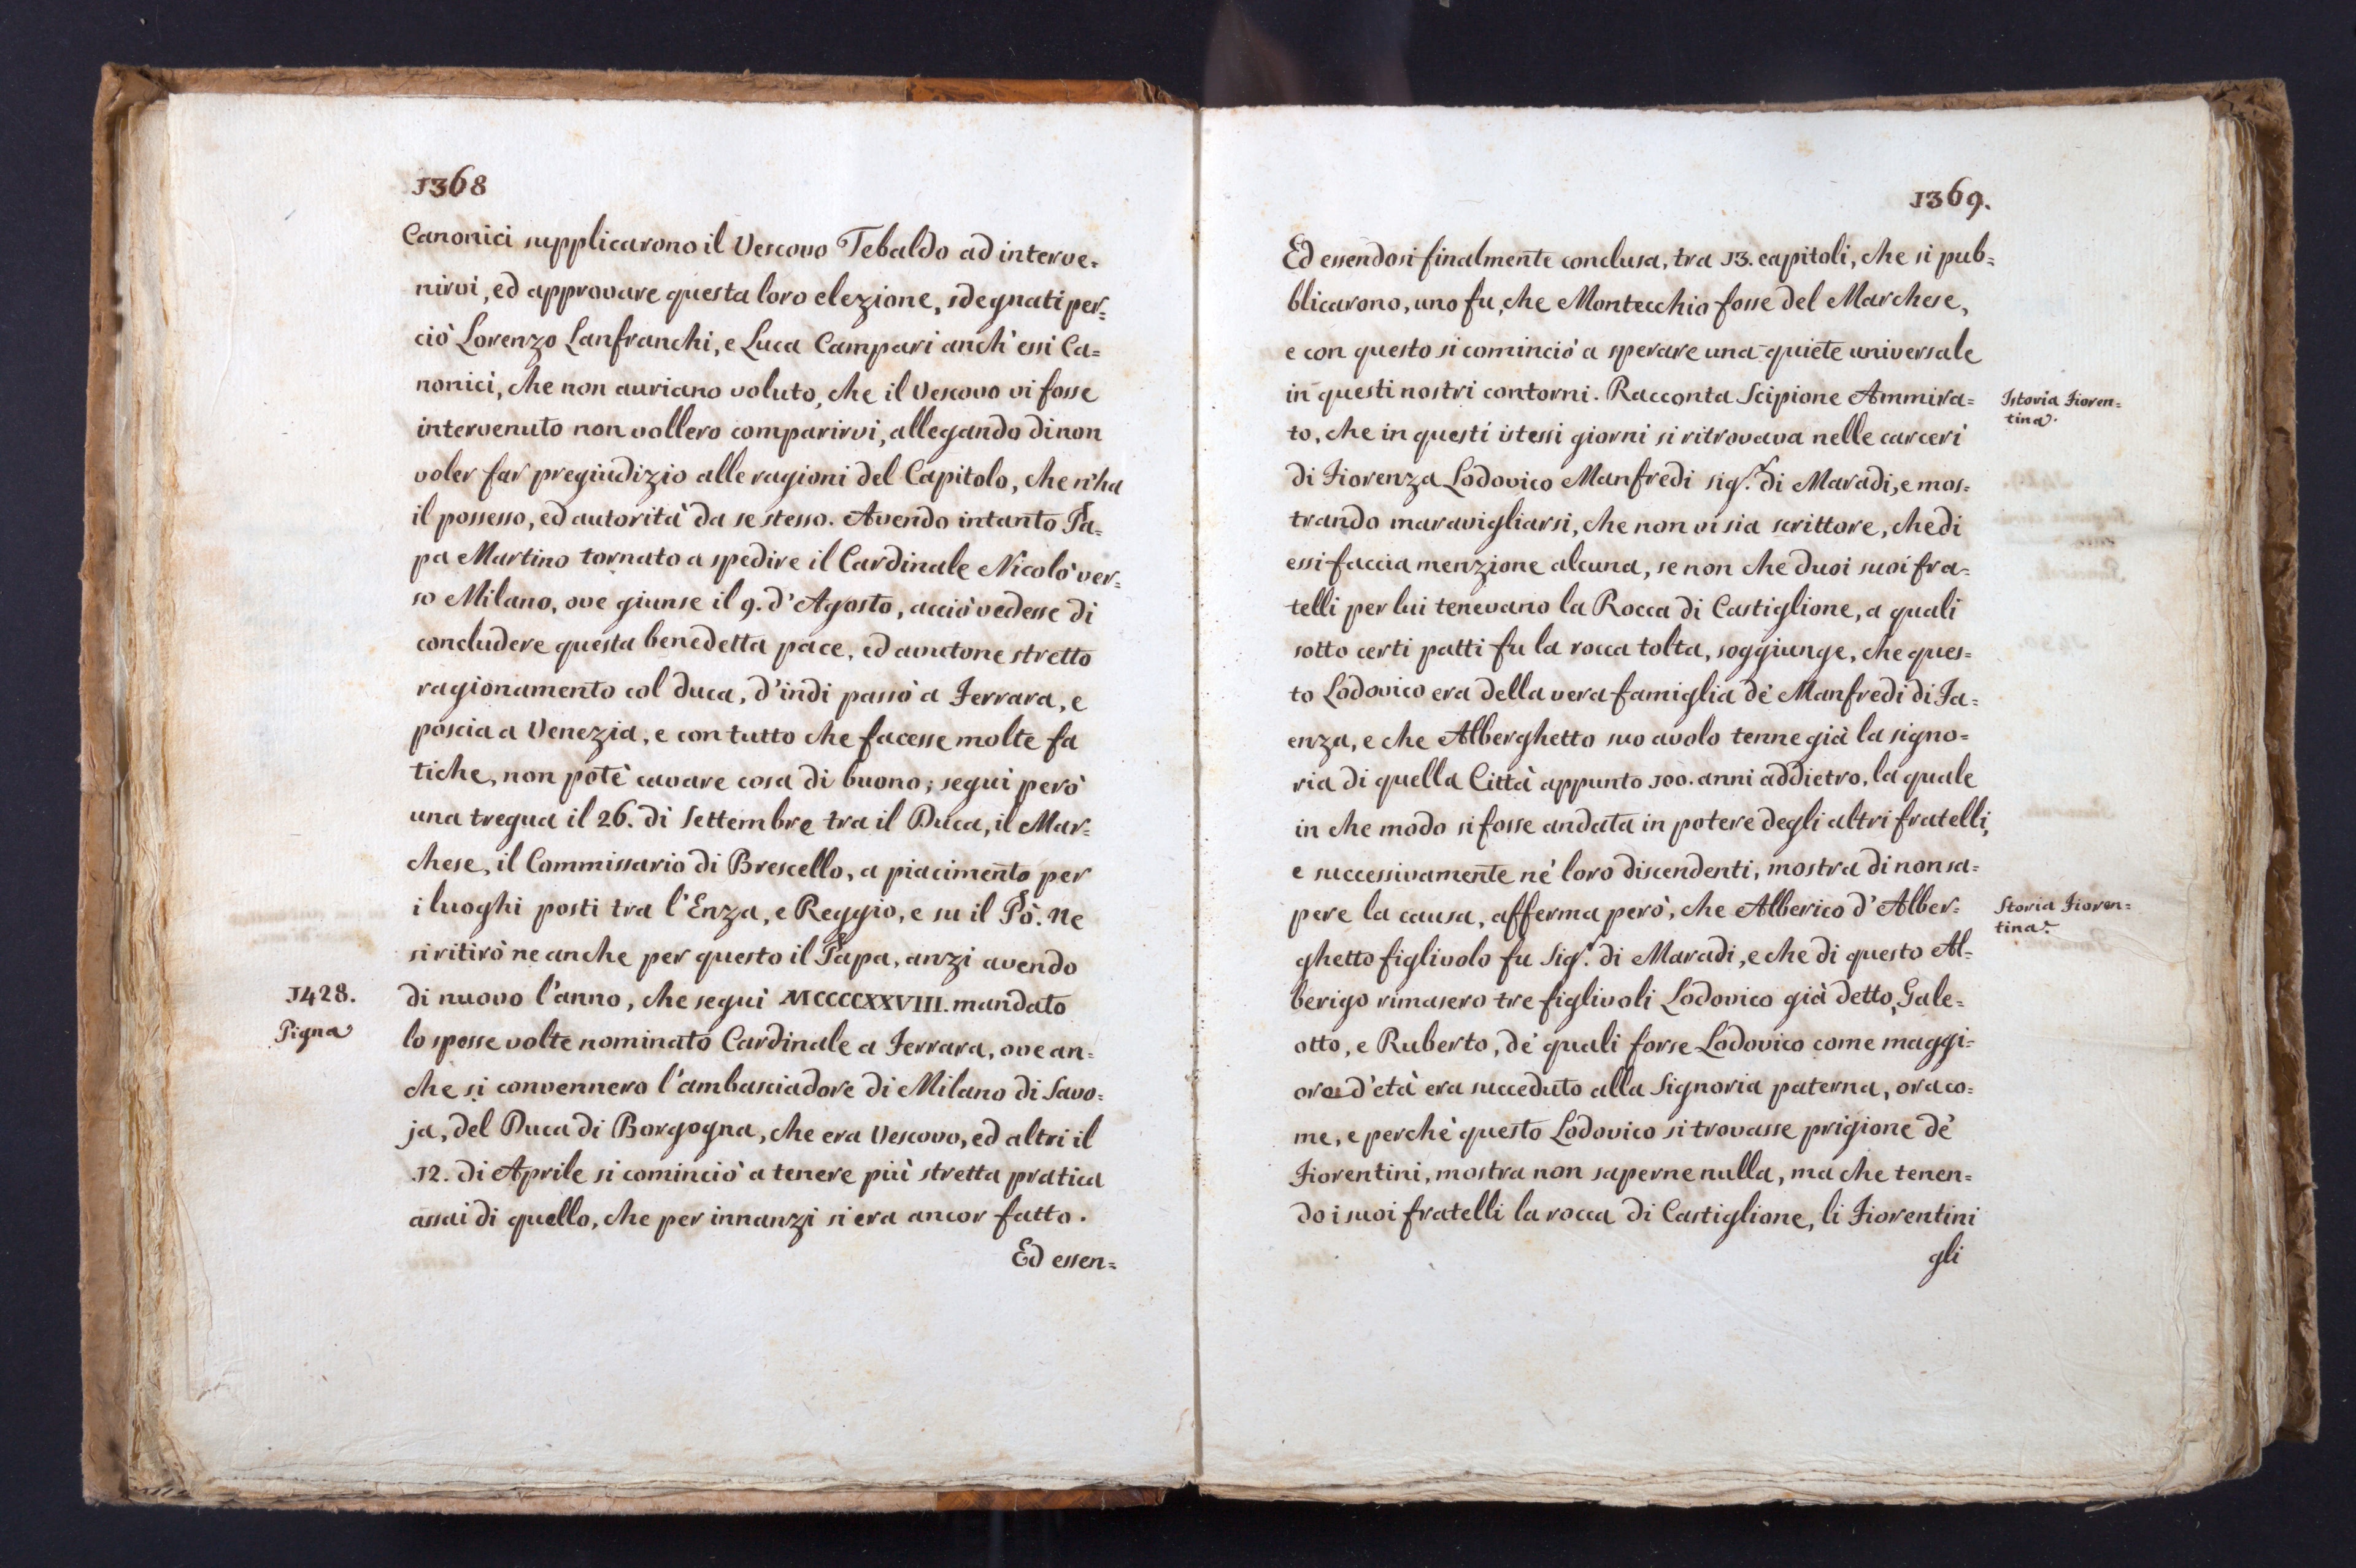 1368
Canonici supplicarono il Vescovo Tebaldo ad interve=
nirvi, ed approvare questa loro elezione, sdegnati per=
ciò Lorenzo Lanfranchi, e Luca Campari anch'essi Ca=
nonici, che non auriano voluto, che il Vescovo vi fosse
intervenuto non vollero comparirvi, allegando di non
voler far pregiudizio alle ragioni del Capitolo, che n'ha
il possesso, ed autorità da se stesso. Avendo intanto Pa=
pa Martino tornato a spedire il Cardinale Nicolò ver=
so Milano, ove giunse il 9. d'Agosto, acciò vedesse di
concludere questa benedetta pace, ed avutone stretto
ragionamento col Duca, d'indi passò a Ferrara, e
poscia a Venezia, e con tutto che facesse molte fa
tiche, non potè cavare cosa di buono; seguì però
una tregua il 26. di Settembre tra il Duca, il Mar=
chese, il Commissario di Brescello, a piacimento per
i luoghi posti tra l'Enza, e Reggio, e su il Pò. Ne
si ritirò ne anche per questo il Papa, anzi avendo
1428.
di nuovo l'anno, che seguì MCCCCXXVIII. mandato
Pigna
lo spesse volte nominato Cardinale a Ferrara, ove an=
che si convennero l'ambasciadore di Milano di Savo=
ja, del Duca di Borgogna, che era Vescovo, ed altri il
12. di Aprile si cominciò a tenere più stretta pratica
assai di quello, che per innanzi si era ancor fatto.
Ed essen=
1369.
Ed essendosi finalmente conclusa, tra 13. capitoli, che si pub=
blicarono, uno fu, che Montecchio fosse del Marchese,
e con questo si cominciò a sperare una quiete universale
in questi nostri contorni. Racconta Scipione Ammira=
Istoria Fioren=
tina.
to, che in questi istessi giorni si ritrovava nelle carceri
di Fiorenza Lodovico Manfredi sig.r di Maradi, e mos=
trando maravigliarsi, che non vi sia scrittore, che di
essi faccia menzione alcuna, se non che duoi suoi fra=
telli per lui tenevano la Rocca di Castiglione, a quali
sotto certi patti fu la rocca tolta, soggiunge, che ques=
to Lodovico era della vera famiglia de' Manfredi di Fa=
enza, e che Alberghetto suo avolo tenne già la signo=
ria di quella Città appunto 100. anni addietro, la quale
in che modo si fosse andata in potere degli altri fratelli,
e successivamente ne' loro discendenti, mostra di non sa=
pere la causa, afferma però, che Alberico d'Alber=
Storia Fioren=
tina.
ghetto figlivolo fu Sig.r di Maradi, e che di questo Al=
berigo rimasero tre figlivoli Lodovico già detto, Gale=
otto, e Ruberto, de' quali forse Lodovico come maggi=
ore d'età era succeduto alla Signoria paterna, ora co=
me, e perchè questo Lodovico si trovasse prigione de'
Fiorentini, mostra non saperne nulla, ma che tenen=
do i suoi fratelli la rocca di Castiglione, li Fiorentini
gli